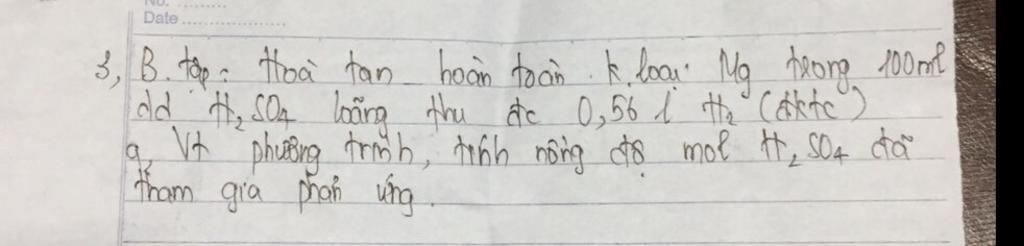 No. .........
Date ..................
3, B. tập: Hoà tan hoàn toàn k.loại Mg trong 100ml
dd H₂SO₄ loãng thu đc 0,56 l H₂ (đktc)
a, Vt phương trình, tính nồng độ mol H₂SO₄ đã
tham gia phản ứng.